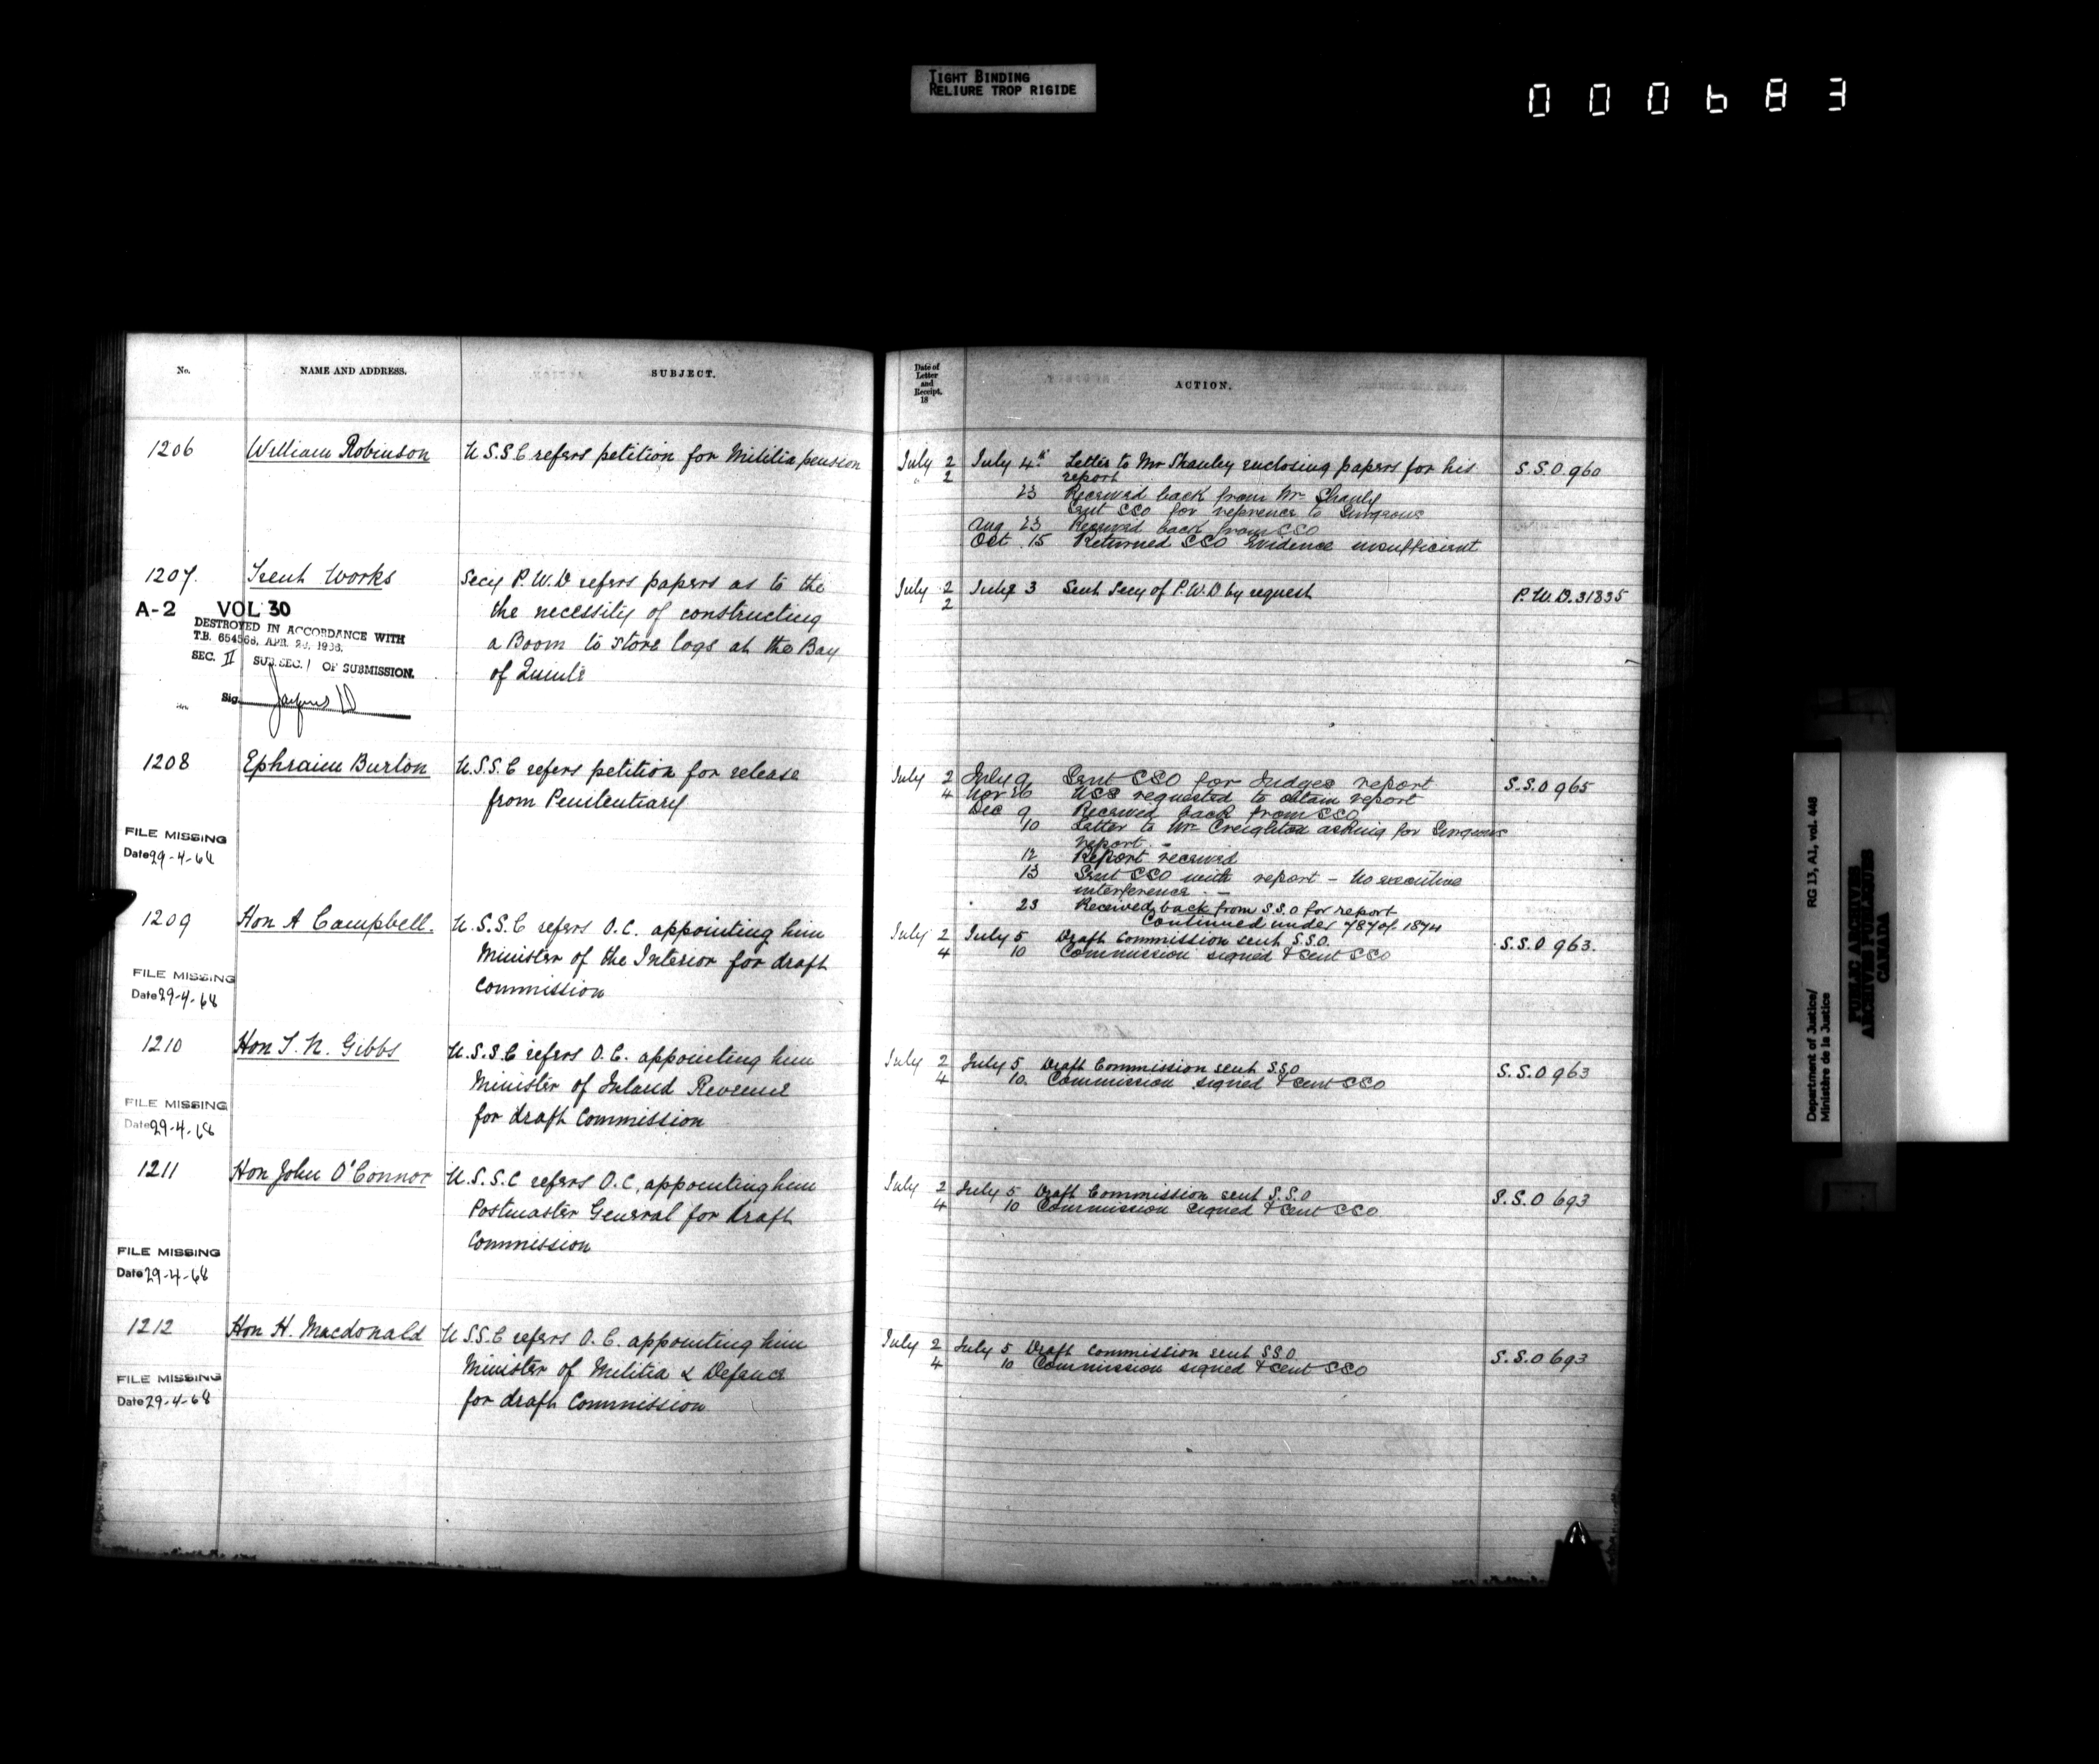 TIGHT BINDING
RELIURE TROP RIGIDE
000683
No.
NAME AND ADDRESS.
SUBJECT.
1206
William Robinson
U.S.S.C refers petition for Militia pension
1207.
Trent Works
Secy P.W.D refers papers as to the
the necessity of constructing
a Boom to store logs at the Bay
of Quinté
A-2 VOL 30
DESTROYED IN ACCORDANCE WITH
T.B. 654568, APR. 1938.
SEC. II SUB.SEC. 1 OF SUBMISSION.
Sig.
1208
Ephraim Burton
U.S.S.C refers petition for release
from Penitentiary
FILE MISSING
Date 29-4-68
1209
Hon A Campbell.
U.S.S.C refers O.C. appointing him
Minister of the Interior for draft
Commission
FILE MISSING
Date 29-4-68
1210
Hon T. N. Gibbs
U.S.S.C refers O.C. appointing him
Minister of Inland Revenue
for draft Commission
FILE MISSING
Date 29-4-68
1211
Hon John O'Connor
U.S.S.C refers O.C. appointing him
Postmaster General for Draft
Commission
FILE MISSING
Date 29-4-68
1212
Hon H. Macdonald
U.S.S.C refers O.C. appointing him
Minister of Militia & Defence
for draft Commission
FILE MISSING
Date 29-4-68
Date of
Letter
and
Receipt.
18
ACTION.
July 2 July 4th Letter to Mr Shanley enclosing papers for his S.S.O. 960
2 report
23 Received back from Mr Shanly
Sent SSO for reference to Surgeons
Aug 23 Received back from SSO
Oct. 15 Returned SSO Evidence insufficient
July 2 July 3 Sent Secy of P.W.D by request P.W.D. 31835
2
July 2 July 9 Sent SSO for Judges report S.S.O 965
4 Nov 26 USS requested to obtain report
Dec 9 Received back from SSO
10 Letter to Mr Creighton asking for Surgeons
report. -
12 Report received
13 Sent SSO with report - No executive
interference. -
23 Received back from S.S.O for report
Continued under 787 of 1874
July 2 July 5 Draft Commission sent S.S.O. S.S.O 963.
4 10 Commission signed & sent SSO
July 2 July 5 Draft Commission sent S.S.O S.S.O 963
4 10. Commission signed & sent SSO
July 2 July 5 Draft Commission sent S.S.O S.S.O 693
4 10 Commission signed & sent SSO
July 2 July 5 Draft Commission sent S.S.O S.S.O 693
4 10 Commission signed & sent SSO
Department of Justice/
Ministère de la Justice
RG 13, A1, vol. 448
PUBLIC ARCHIVES
ARCHIVES PUBLIQUES
CANADA